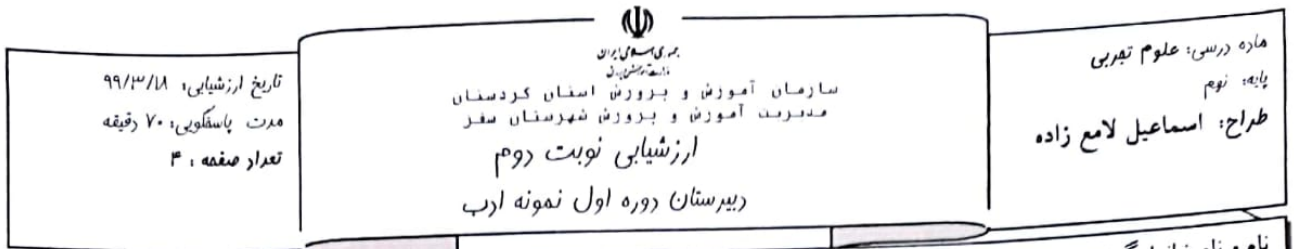 ماده درسی: علوم تجربی
پایه: نهم
طراح: اسماعیل لامع زاده
جمهوری اسلامی ایران
وزارت آموزش و پرورش
سازمان آموزش و پرورش استان کردستان
مدیریت آموزش و پرورش شهرستان سقز
ارزشیابی نوبت دوم
دبیرستان دوره اول نمونه ادب
تاریخ ارزشیابی: ۹۹/۳/۱۸
مدت پاسخگویی: ۷۰ دقیقه
تعداد صفحه: ۴